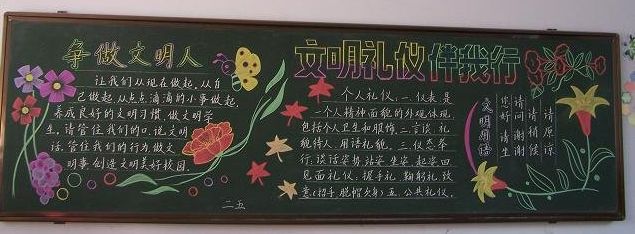 争做文明人
让我们从现在做起,从自
己做起,从点点滴滴的小事做起,
养成良好的文明习惯,做文明学
生,请管住我们的口,说文明
话,管住我们的行为,做文
明事,创造文明美好校园.
二五
文明礼仪伴我行
个人礼仪:一.仪表是
一个人精神面貌的外观体现,
包括个人卫生和服饰.二.言谈:礼
貌待人,用语礼貌.三.仪态举
行:谈话姿势站姿坐姿.起姿四
见面礼仪:握手礼.鞠躬礼.致
意(招手脱帽欠身)五.公共礼仪.
文明用语
您好请坐
请问谢谢
请稍候
请原谅